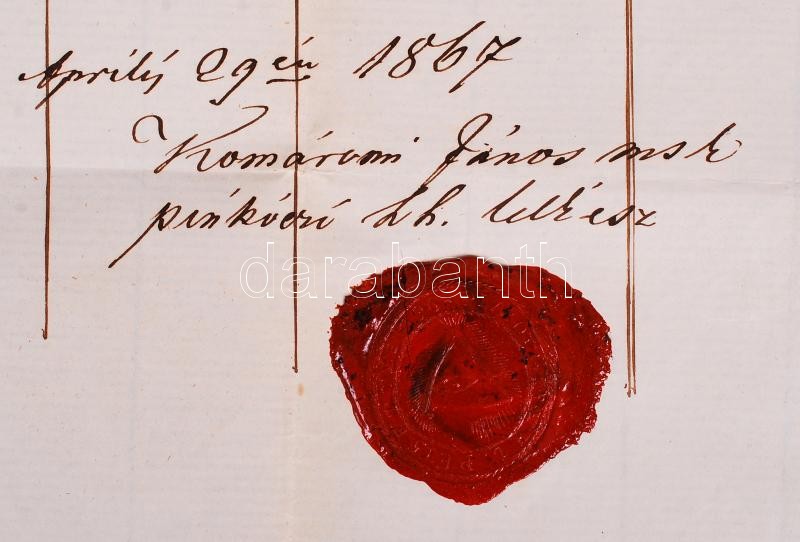 Aprilij 29én 1867
Komáromi János msk
pinkóczi h.h. lelkész
darabanth